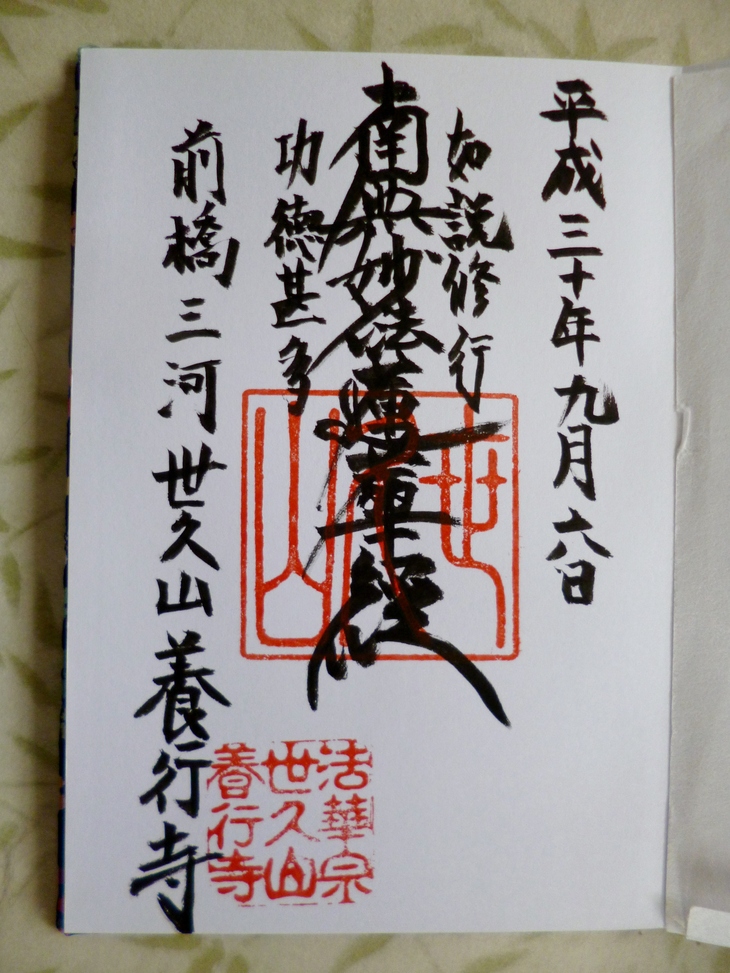 平成三十年九月六日
如説修行
南無妙法蓮華経
功徳甚多
前橋三河世久山養行寺
世久山
法華宗
世久山
養行寺